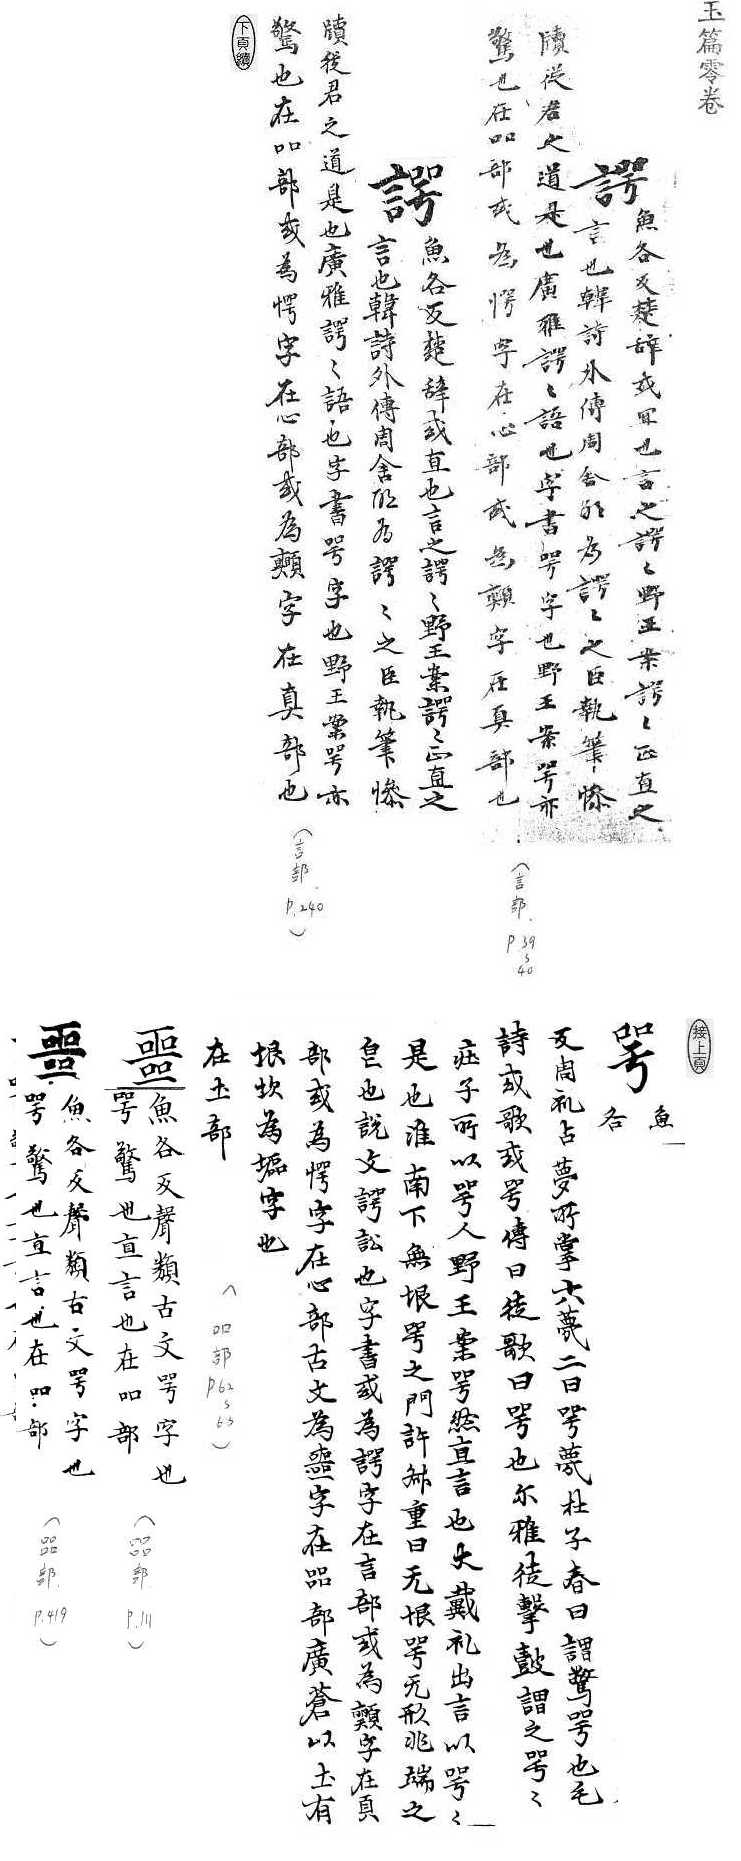 玉篇零卷
諤
魚各反楚辞或直也言之諤〻野王案諤〻正直之
言也韓詩外傳周舍願為諤〻之臣執筆慘
牘從君之道是也廣雅諤〻語也字書咢字也野王案咢亦
驚也在吅部或為愕字在心部或為顭字在頁部也
(言部.
P39
40
諤
魚各反楚辞或直也言之諤〻野王案諤〻正直之
言也韓詩外傳周舍願為諤〻之臣執筆慘
牘從君之道是也廣雅諤〻語也字書咢字也野王案咢亦
驚也在吅部或為愕字在心部或為顭字在真部也
(言部.
P.240
)
下頁續
接上頁
咢
魚
各
反周礼占夢所掌六夢二曰咢夢杜子春曰謂驚咢也毛
詩或歌或咢傳曰徒歌曰咢也尔雅徒擊鼓謂之咢〻
莊子所以咢人野王案咢然直言也大戴礼出言以咢〻
是也淮南下無垠咢之門許叔重曰无垠咢无形兆端之
皃也說文諤訟也字書或為諤字在言部或為顭字在頁
部或為愕字在心部古文為噩字在㗊部廣蒼以土有
垠坎為堮字也
在土部
(吅部
P62
63
)
噩
魚各反聲類古文咢字也
咢驚也直言也在吅部
(㗊部.
P.111
)
噩
魚各反聲類古文咢字也
咢驚也直言也在吅部
(㗊部.
P.419
)